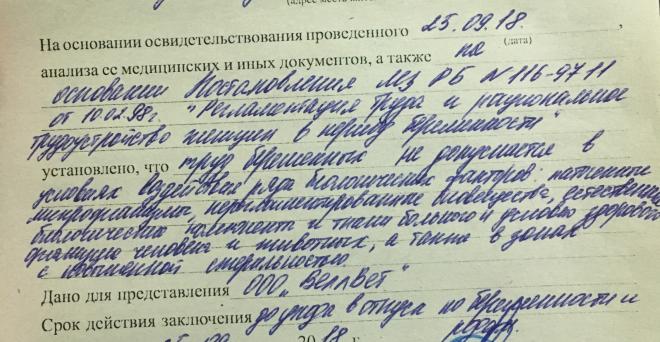 (адрес места
На основании освидетельствования проведенного 25.09.18.,
(дата)
анализа ее медицинских и иных документов, а также на
основании Постановления МЗ РБ N 116-9711
от 10.02.98г. "Регламентация труда и рациональное
трудоустройство женщин в период беременности"
установлено, что труд беременных не допускается в
условиях воздействия ряда биологических факторов: патогенные
микроорганизмы, регламентированные
биологических и ткани больного и условно здорового
организма человека и животных, а также в зонах
с повышенной стерильностью
Дано для представления ООО "ВеллВет"
Срок действия заключения до ухода в отпуск по беременности и
родам.
2018 г.